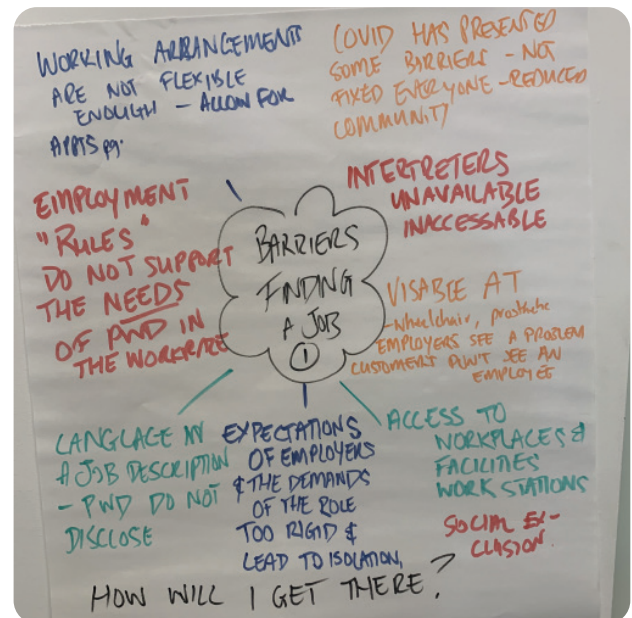 WORKING ARRANGEMENTS
ARE NOT FLEXIBLE
ENOUGH - ALLOW FOR
COVID HAS PRESENTED
SOME BARRIERS - NOT
FIXED EVERYONE - REDUCED
COMMUNITY
EMPLOYMENT
"RULES"
DO NOT SUPPORT
THE NEEDS
OF PWD IN
THE WORKPLACE
BARRIERS
FINDING
A JOB
1
INTERPRETERS
UNAVAILABLE
INACCESSABLE
VISABLE AT
- wheelchair, prosthetic
EMPLOYERS SEE A PROBLEM
CUSTOMERS DON'T SEE AN
EMPLOYEE
LANGUAGE IN
A JOB DESCRIPTION
- PWD DO NOT
DISCLOSE
EXPECTATIONS
OF EMPLOYERS
& THE DEMANDS
OF THE ROLE
TOO RIGID &
LEAD TO ISOLATION,
ACCESS TO
WORKPLACES &
FACILITIES
WORK STATIONS
SOCIAL EX-
CLUSION.
HOW WILL I GET THERE?